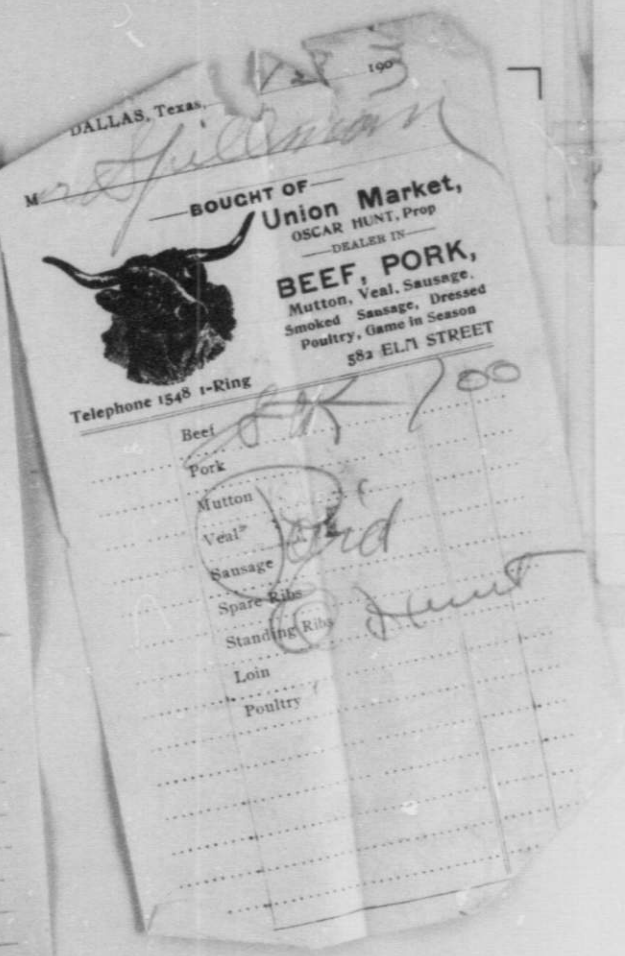 DALLAS, Texas, 1/2 1903
Mr Spillman
BOUGHT OF
Union Market,
OSCAR HUNT, Prop
DEALER IN
BEEF, PORK,
Mutton, Veal, Sausage,
Smoked Sausage, Dressed
Poultry, Game in Season
582 ELM STREET
Telephone 1548 1-Ring
Beef 7 00
Pork
Mutton
Veal
Paid
Sausage
Spare Ribs
O Hunt
Standing Ribs
Loin
Poultry